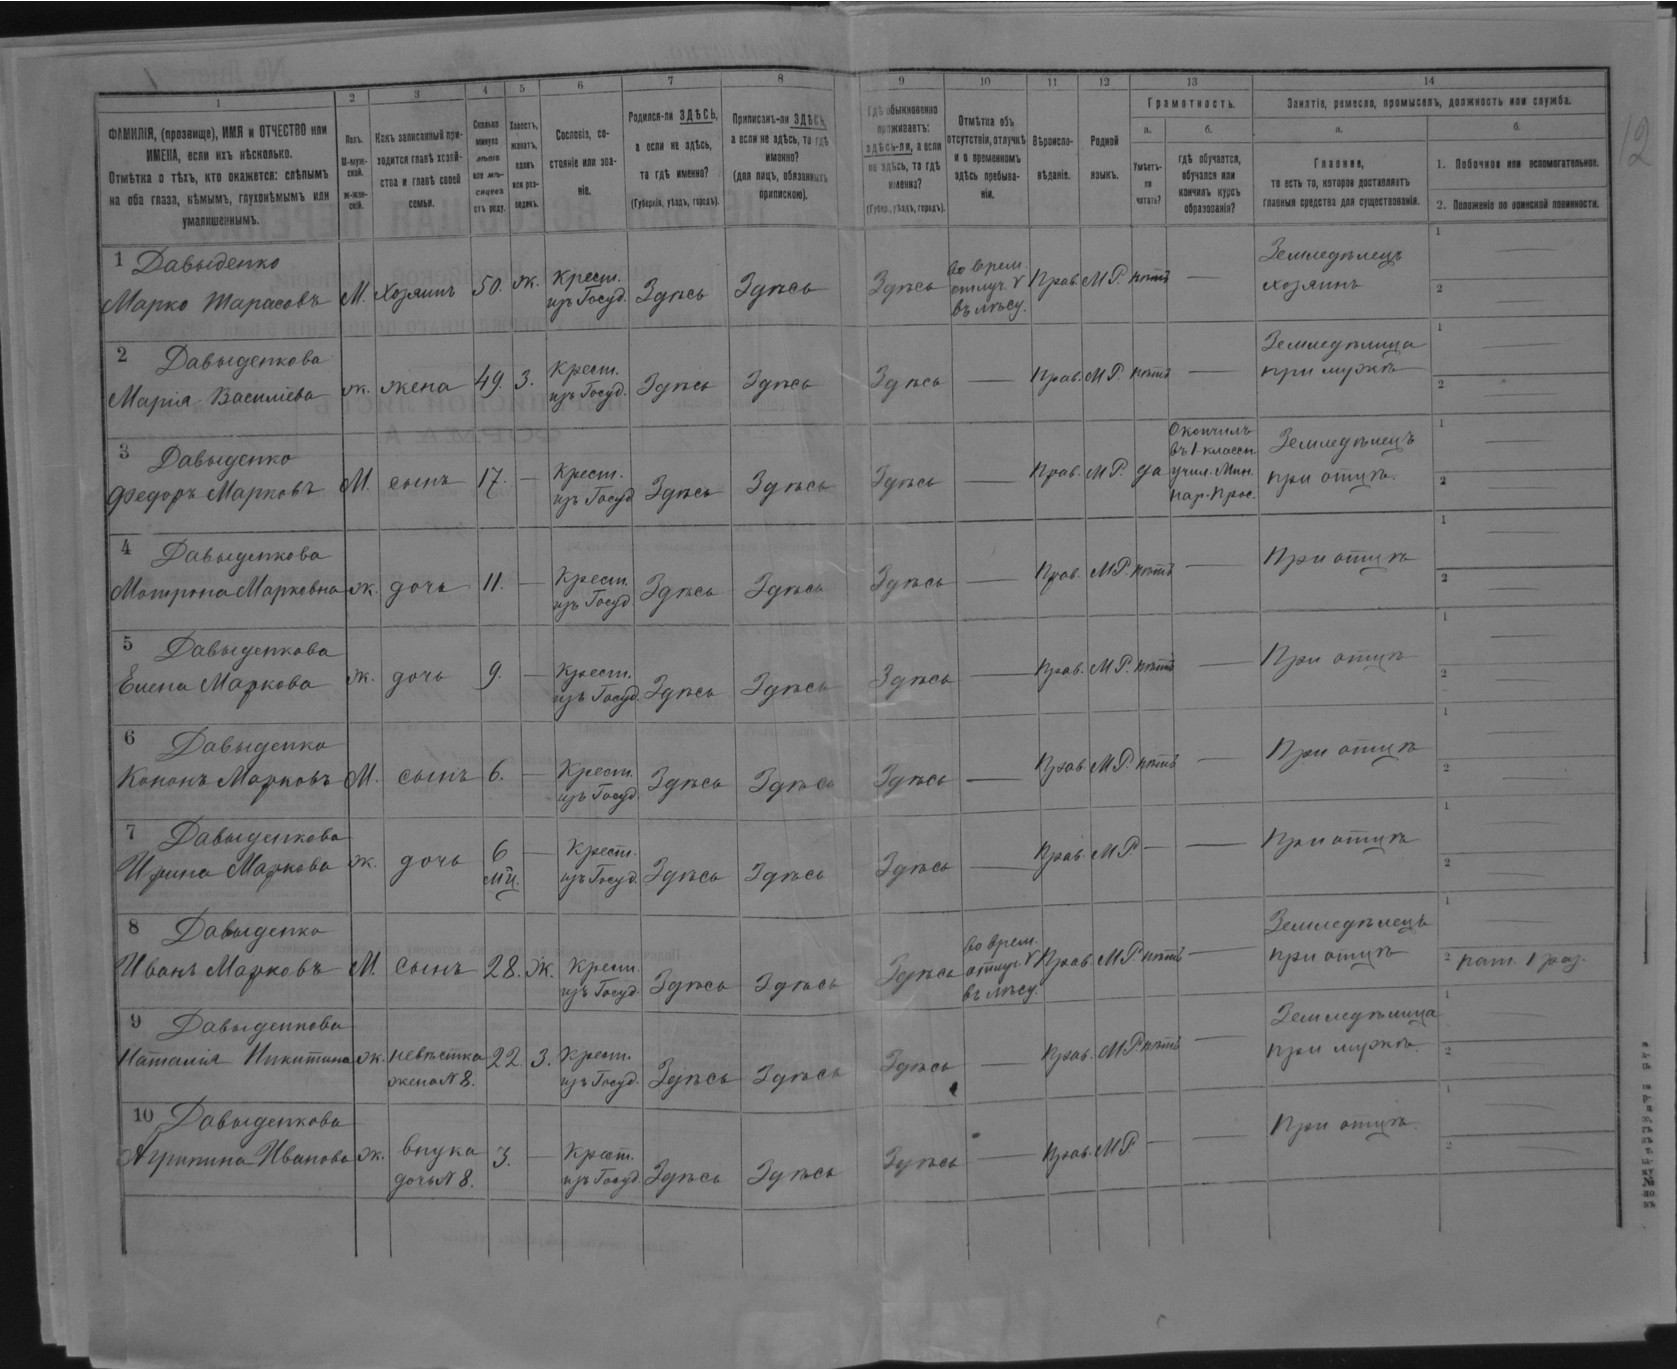 12
1 2 3 4 5 6 7 8 9 10 11 12 13 14
ФАМИЛІЯ, (прозвище), ИМЯ и ОТЧЕСТВО или ИМЕНА, если ихъ нѣсколько.
Отмѣтка о тѣхъ, кто окажется: слѣпымъ на оба глаза, нѣмымъ, глухонѣмымъ или умалишеннымъ.
Полъ.
М-мужской.
ж-женскій.
Какъ записанный приходится главѣ хозяйства и главѣ своей семьи.
Сколько минуло лѣтъ или мѣсяцевъ отъ роду.
Холостъ, женатъ, вдовъ или разведенъ.
Сословіе, состояніе или званіе.
Родился-ли ЗДѢСЬ, а если не здѣсь, то гдѣ именно?
(Губернія, уѣздъ, городъ).
Приписанъ-ли ЗДѢСЬ, а если не здѣсь, то гдѣ именно?
(для лицъ, обязанныхъ припискою).
Гдѣ обыкновенно проживаетъ: здѣсь-ли, а если не здѣсь, то гдѣ именно?
(Губер., уѣздъ, городъ).
Отмѣтка объ отсутствіи, отлучкѣ и о временномъ здѣсь пребываніи.
Вѣроисповѣданіе.
Родной языкъ.
Грамотность.
а.
Умѣетъ-ли читать?
б.
гдѣ обучается, обучался или кончилъ курсъ образованія?
Занятіе, ремесло, промыселъ, должность или служба.
а.
Главное,
то есть то, которое доставляетъ главныя средства для существованія.
б.
1. Побочное или вспомогательное.
2. Положеніе по воинской повинности.
1 Давыденко
Марко Тарасовъ М. хозяинъ 50. ж. Крест. изъ Госуд. Здѣсь Здѣсь Здѣсь во врем. отлуч. V въ лѣсу. Прав. М.Р. нѣтъ — Земледѣлецъ хозяинъ
1 —
2 —
2 Давыденкова
Марія Василіева ж. жена 49. З. Крест. изъ Госуд. Здѣсь Здѣсь Здѣсь — Прав. М.Р. нѣтъ — Земледѣлица при мужѣ
1 —
2 —
3 Давыденко
Федоръ Марковъ М. сынъ 17. — Крест. изъ Госуд Здѣсь Здѣсь Здѣсь — Прав. М.Р. да Окончилъ въ 1-классн. учил. Мин. нар. Прос. Земледѣлецъ при отцѣ.
1 —
2 —
4 Давыденкова
Мотрона Марковна ж. дочь 11. — Крест. изъ Госуд Здѣсь Здѣсь Здѣсь — Прав. М.Р. нѣтъ — При отцѣ
1 —
2 —
5 Давыденкова
Елена Маркова ж. дочь 9. — Крест. изъ Госуд. Здѣсь Здѣсь Здѣсь — Прав. М.Р. нѣтъ — При отцѣ
1 —
2 —
6 Давыденко
Кононъ Марковъ М. сынъ 6. — Крест. изъ Госуд. Здѣсь Здѣсь Здѣсь — Прав М.Р. нѣтъ — При отцѣ
1 —
2 —
7 Давыденкова
Ирина Маркова ж. дочь 6 мц. — Крест. изъ Госуд. Здѣсь Здѣсь Здѣсь — Прав. М.Р. — — При отцѣ
1 —
2 —
8 Давыденко
Иванъ Марковъ М. сынъ 28. Ж. Крест. изъ Госуд. Здѣсь Здѣсь Здѣсь во врем. отлуч V въ лѣсу. Прав. М.Р нѣтъ — Земледѣлецъ при отцѣ
1 —
2 рат. 1 раз.
9 Давыденкова
Наталія Никитина ж. невѣстка жена N 8. 22. З. Крест. изъ Госуд. Здѣсь Здѣсь Здѣсь — Прав. М.Р нѣтъ — Земледѣлица при мужѣ.
1 —
2 —
10 Давыденкова
Агрипина Иванова ж. внука дочь N 8. 3. — Крест. изъ Госуд Здѣсь Здѣсь Здѣсь — Прав. М.Р — — При отцѣ.
1 —
2 —